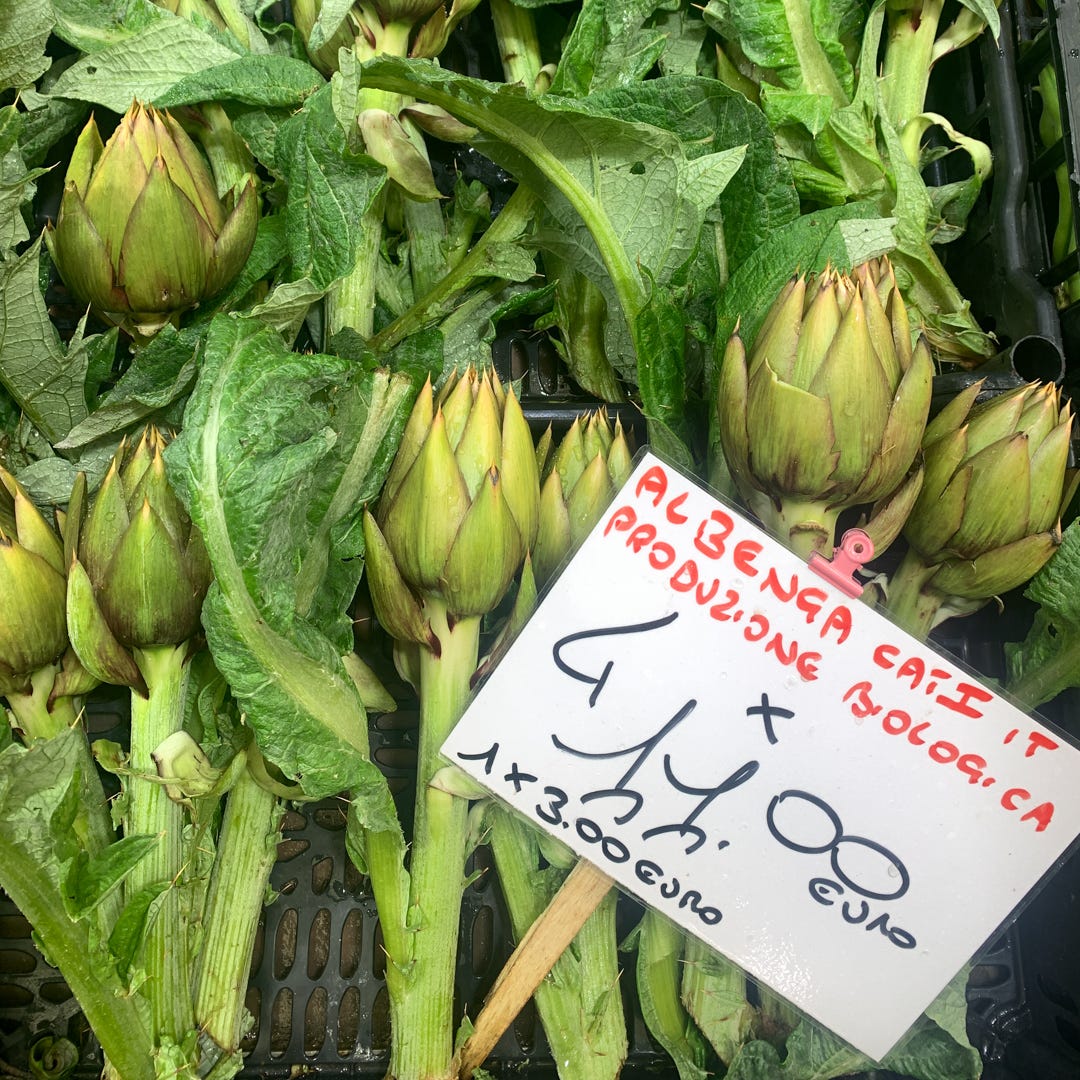 ALBENGA CAT I IT
PRODUZIONE BIOLOGICA
4 x 11.00 EURO
1 x 3.00 EURO